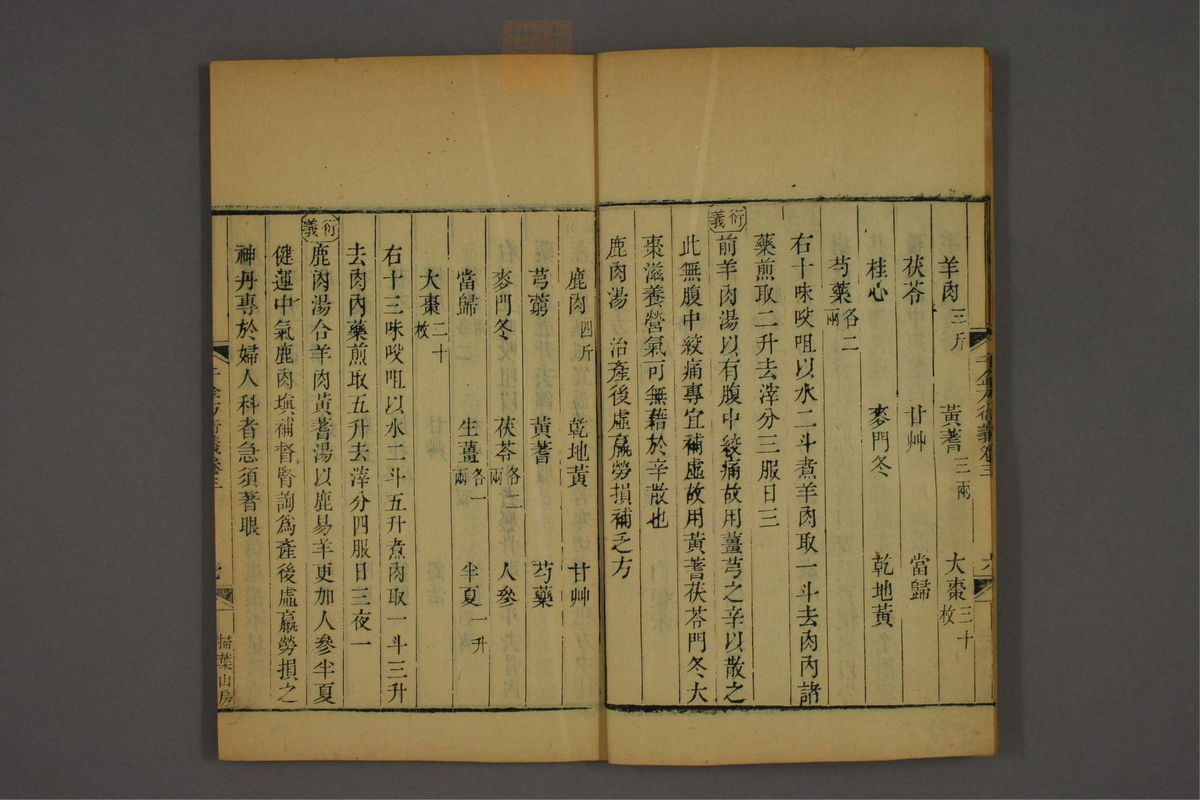 羊肉三斤 黃蓍三兩 大棗三十枚
茯苓 甘艸 當歸
桂心 麥門冬 乾地黃
芍藥各二兩
右十味㕮咀以水二斗煮羊肉取一斗去肉內諸
藥煎取二升去滓分三服日三
衍義
前羊肉湯以有腹中絞痛故用薑芎之辛以散之
此無腹中絞痛專宜補虛故用黃蓍茯苓門冬大
棗滋養營氣可無藉於辛散也
鹿肉湯 治產後虛羸勞損補乏方
鹿肉四斤 乾地黃 甘艸
芎藭 黃蓍 芍藥
麥門冬 茯苓各二兩 人參
當歸 生薑各一兩 半夏一升
大棗二十枚
右十三味㕮咀以水二斗五升煮肉取一斗三升
去肉內藥煎取五升去滓分四服日三夜一
衍義
鹿肉湯合羊肉黃蓍湯以鹿易羊更加人參半夏
健運中氣鹿肉塡補督腎詢爲產後虛羸勞損之
神丹專於婦人科者急須著眼
千金方衍義卷三
六
千金方衍義卷三
七
掃葉山房